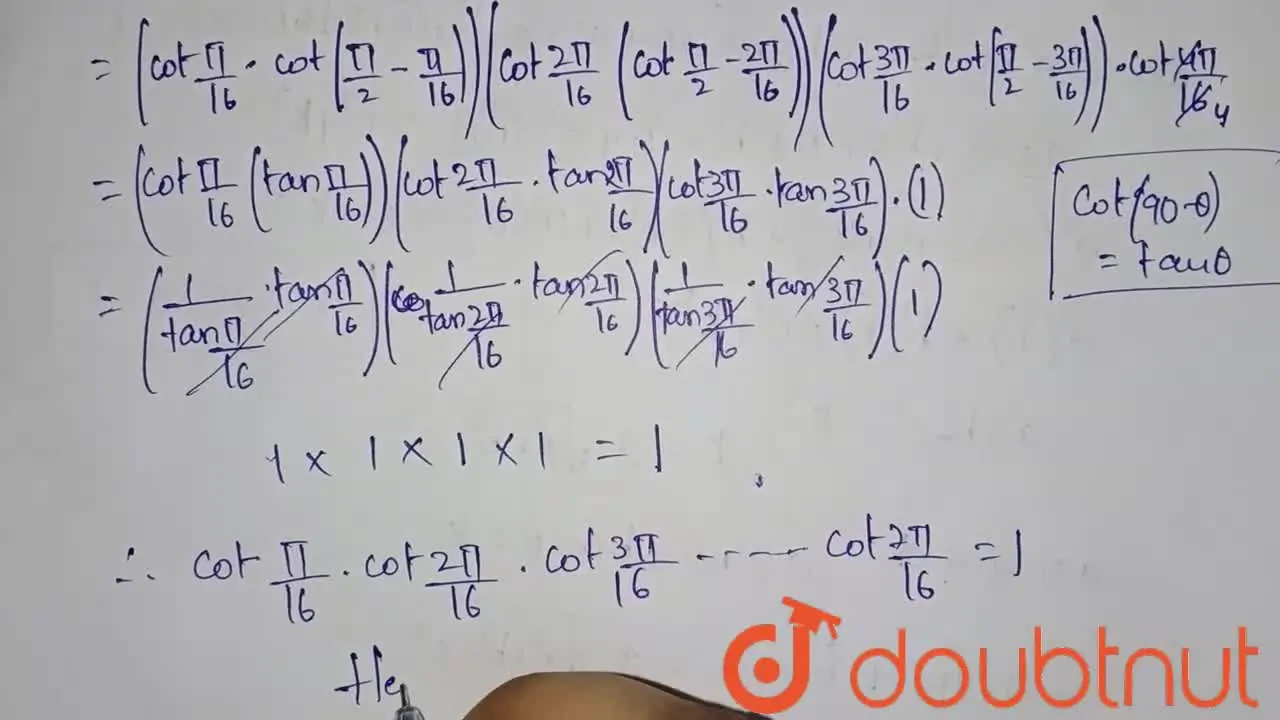 = (cot π/16 · cot(π/2 - π/16)) (cot 2π/16 (cot π/2 - 2π/16)) (cot 3π/16 · cot(π/2 - 3π/16)) · cot 4π/16 4
= (cot π/16 (tan π/16)) (cot 2π/16 · tan 2π/16) (cot 3π/16 · tan 3π/16) · (1)
cot(90-θ)
= tanθ
= (1/tan π/16 · tan π/16) (1/tan 2π/16 · tan 2π/16) (1/tan 3π/16 · tan 3π/16) (1)
1 × 1 × 1 × 1 = 1
∴ cot π/16 · cot 2π/16 · cot 3π/16 ------ cot 2π/16 = 1
He
doubtnut